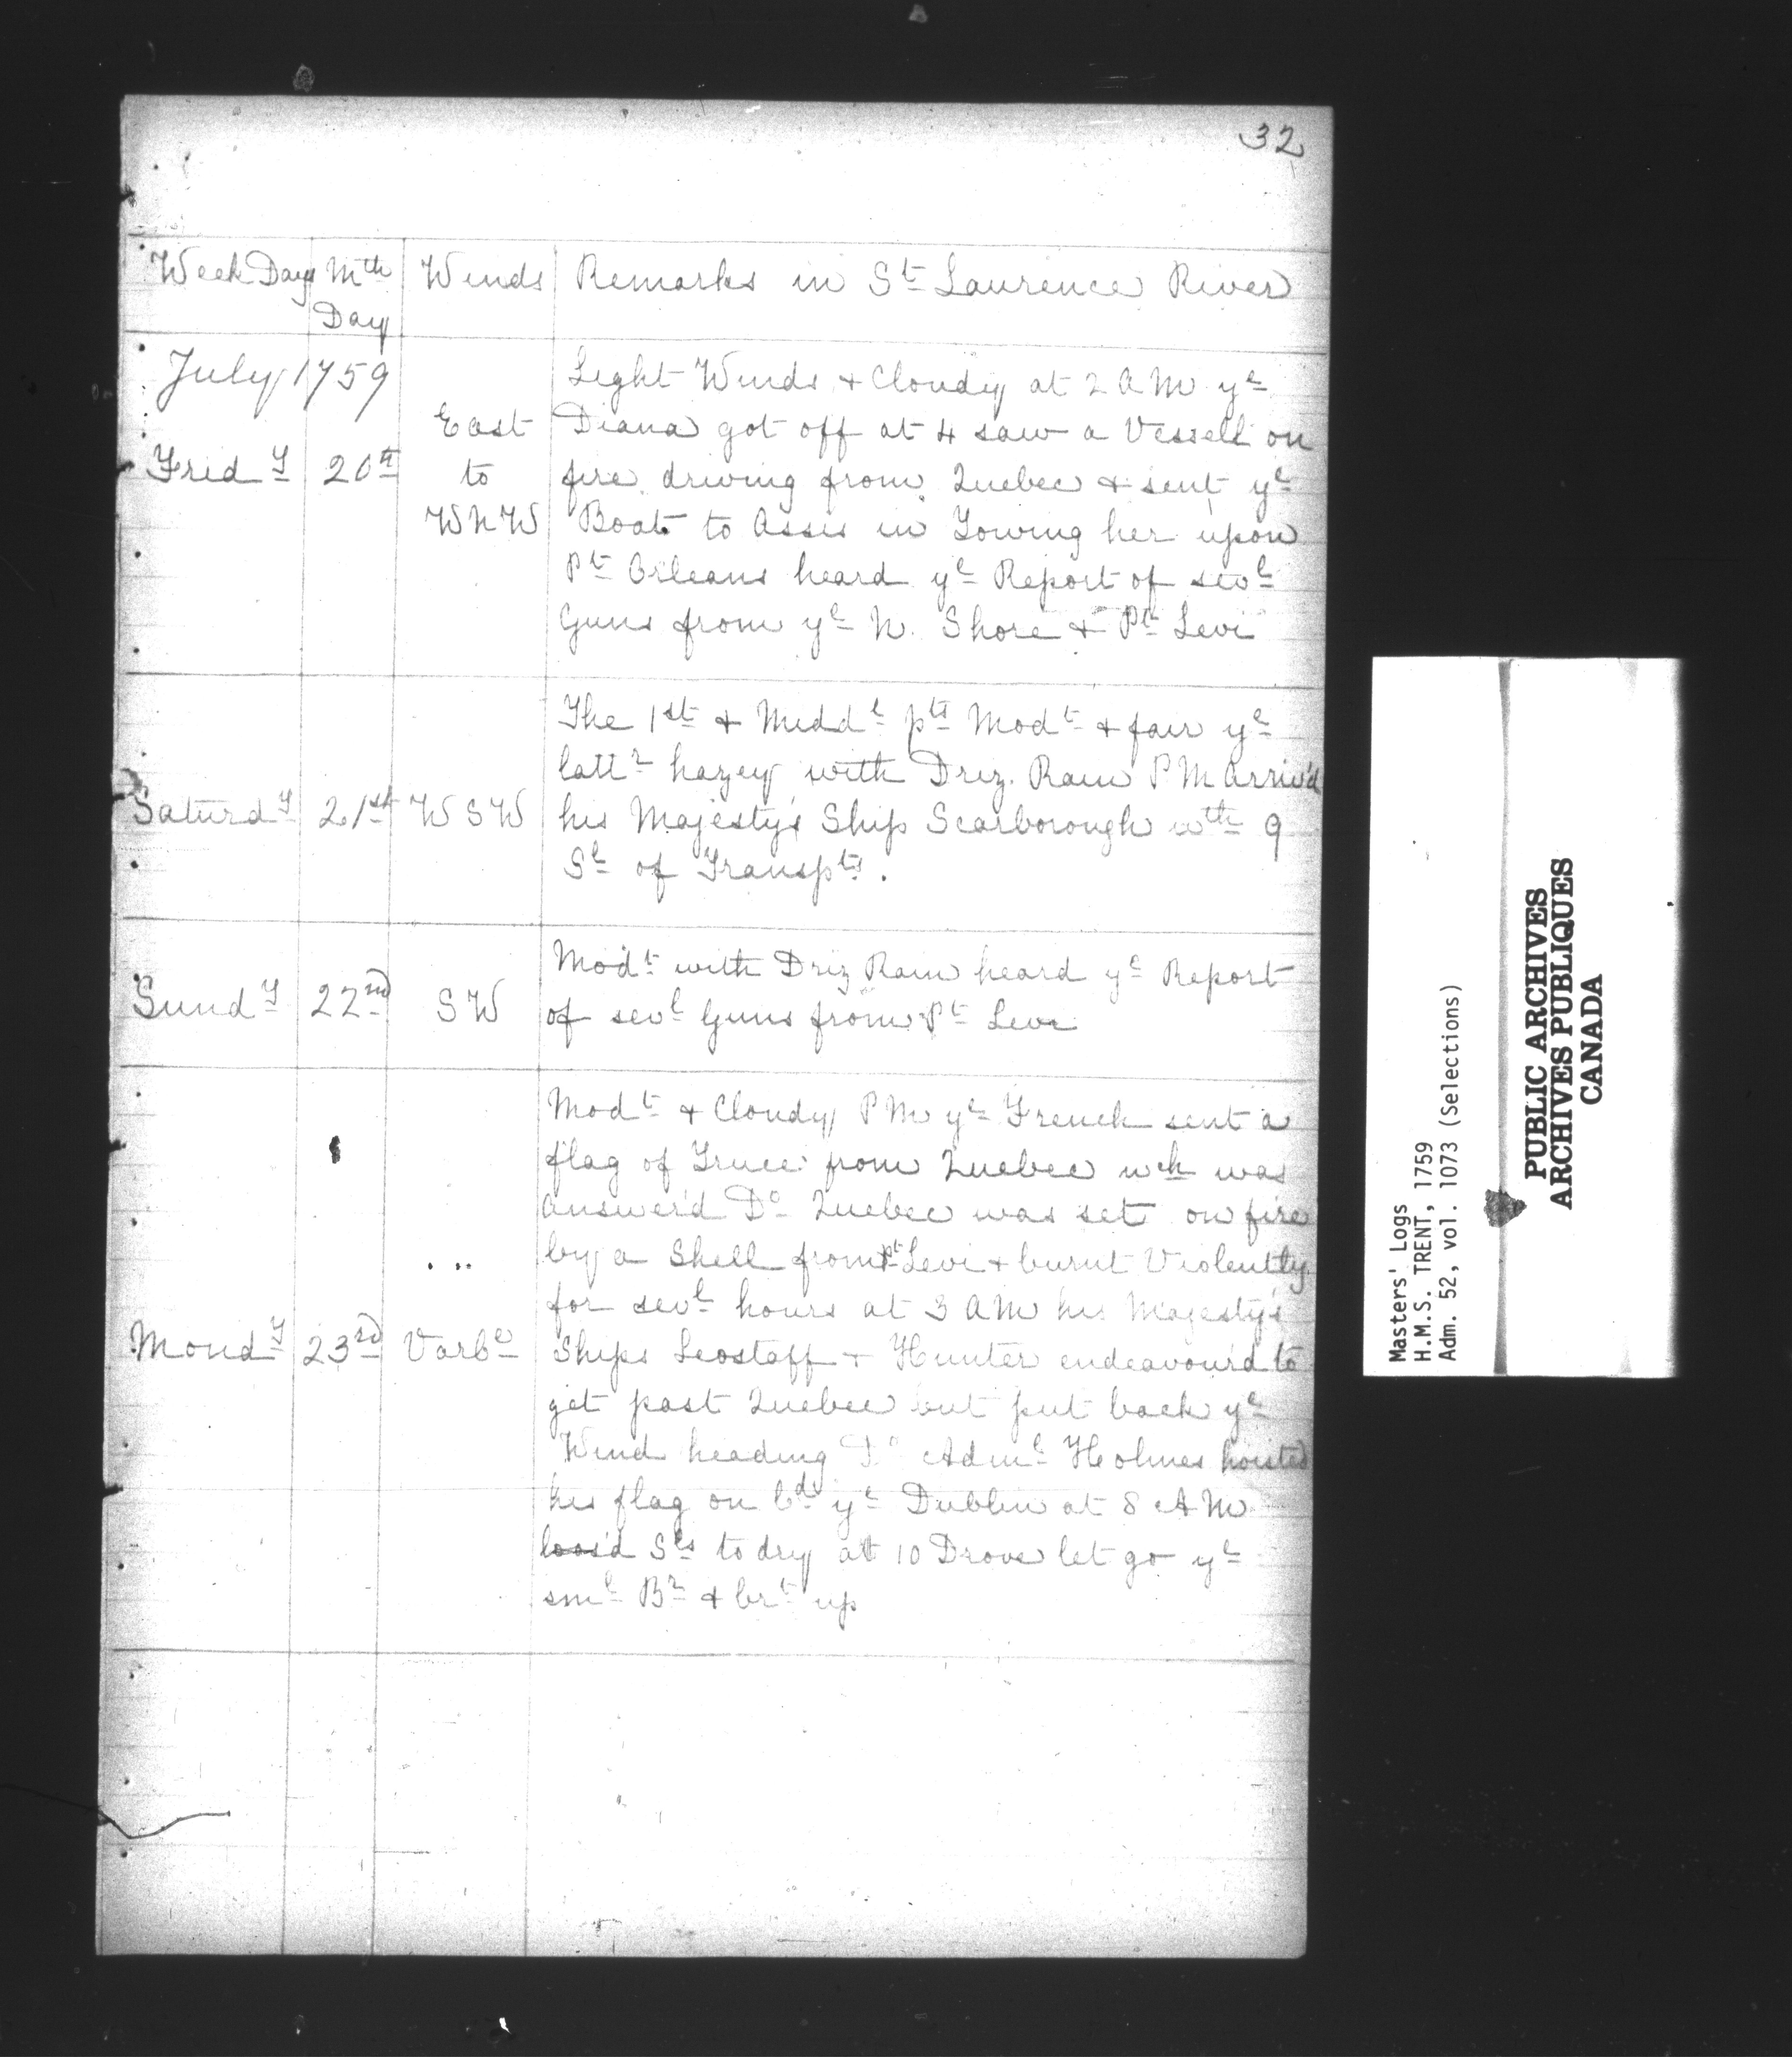 32
Week Days Mth Day Winds Remarks in St Laurence River
July 1759
Light Winds & Cloudy at 2 AM ye
Diana got off at 4 saw a Vessell on
Frid y 20th East to WNW fire driving from Quebec & sent ye
Boat to Assis in Towing her upon
Pt Orleans heard ye Report of sevl
Guns from ye N. Shore & Pt Levi
The 1st & Middl pts Modt & fair ye
lattr hazey with Driz. Rain PM Arriv'd
Saturd y 21st WSW his Majesty's Ship Scarborough wth 9
Sl of Transpts.
Modt with Driz Rain heard ye Report
Sund y 22nd SW of sevl Guns from Pt Levi
Modt & Cloudy PM ye French sent a
flag of Truce from Quebec wch was
answer'd Do Quebec was set on fire
by a Shell from Pt Levi & burnt Violently
for sevl hours at 3 AM his Majesty's
Mond y 23rd Varbe Ships Leostaff & Hunter endeavour'd to
get past Quebec but put back ye
Wind heading Do Adml Holmes hoisted
his flag on bd ye Dublin at 8 AM
loos'd Sls to dry at 10 Drove let go ye
sml Br & brt up
Masters' Logs
H.M.S. TRENT, 1759
Adm. 52, vol. 1073 (Selections)
PUBLIC ARCHIVES
ARCHIVES PUBLIQUES
CANADA